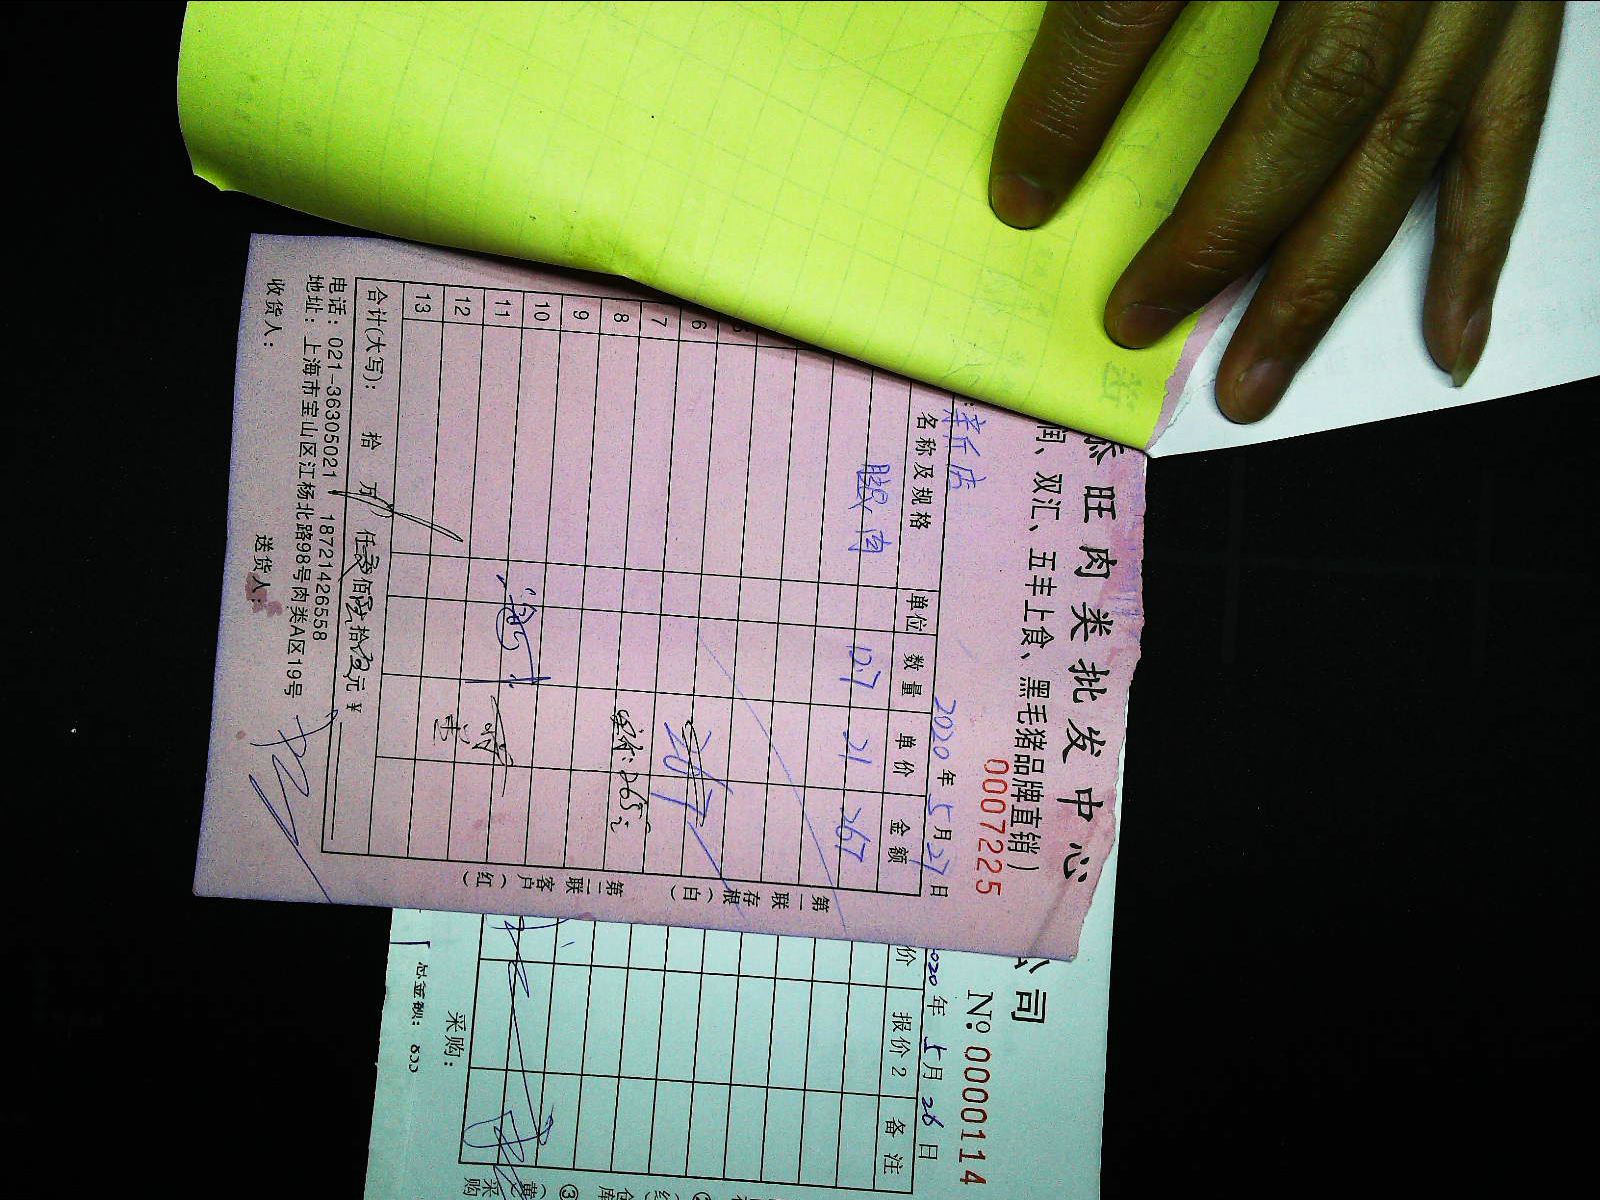 添旺肉类批发中心
润、双汇、五丰上食、黑毛猪品牌直销）
0007225
2020年5月27日
名称及规格 单位 数量 单价 金额
腿肉 12.7 21 267
6
7 267
8 实付:265元
9
10
11
12
13
合计(大写): 拾 万 仟 佰 拾 元 ¥
电话：021-36305021 18721426558
地址：上海市宝山区江杨北路98号肉类A区19号
收货人： 送货人：
第一联 存根（白） 第二联 客户（红）
公司
№:0000114
2020年5月26日
价 报价2 备注
采购：
总金额：800